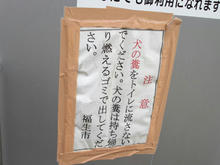 でも御利用になれます
注意
犬の糞をトイレに流さない
でください。犬の糞は持ち帰
り燃えるゴミで出してくだ
さい。
福生市